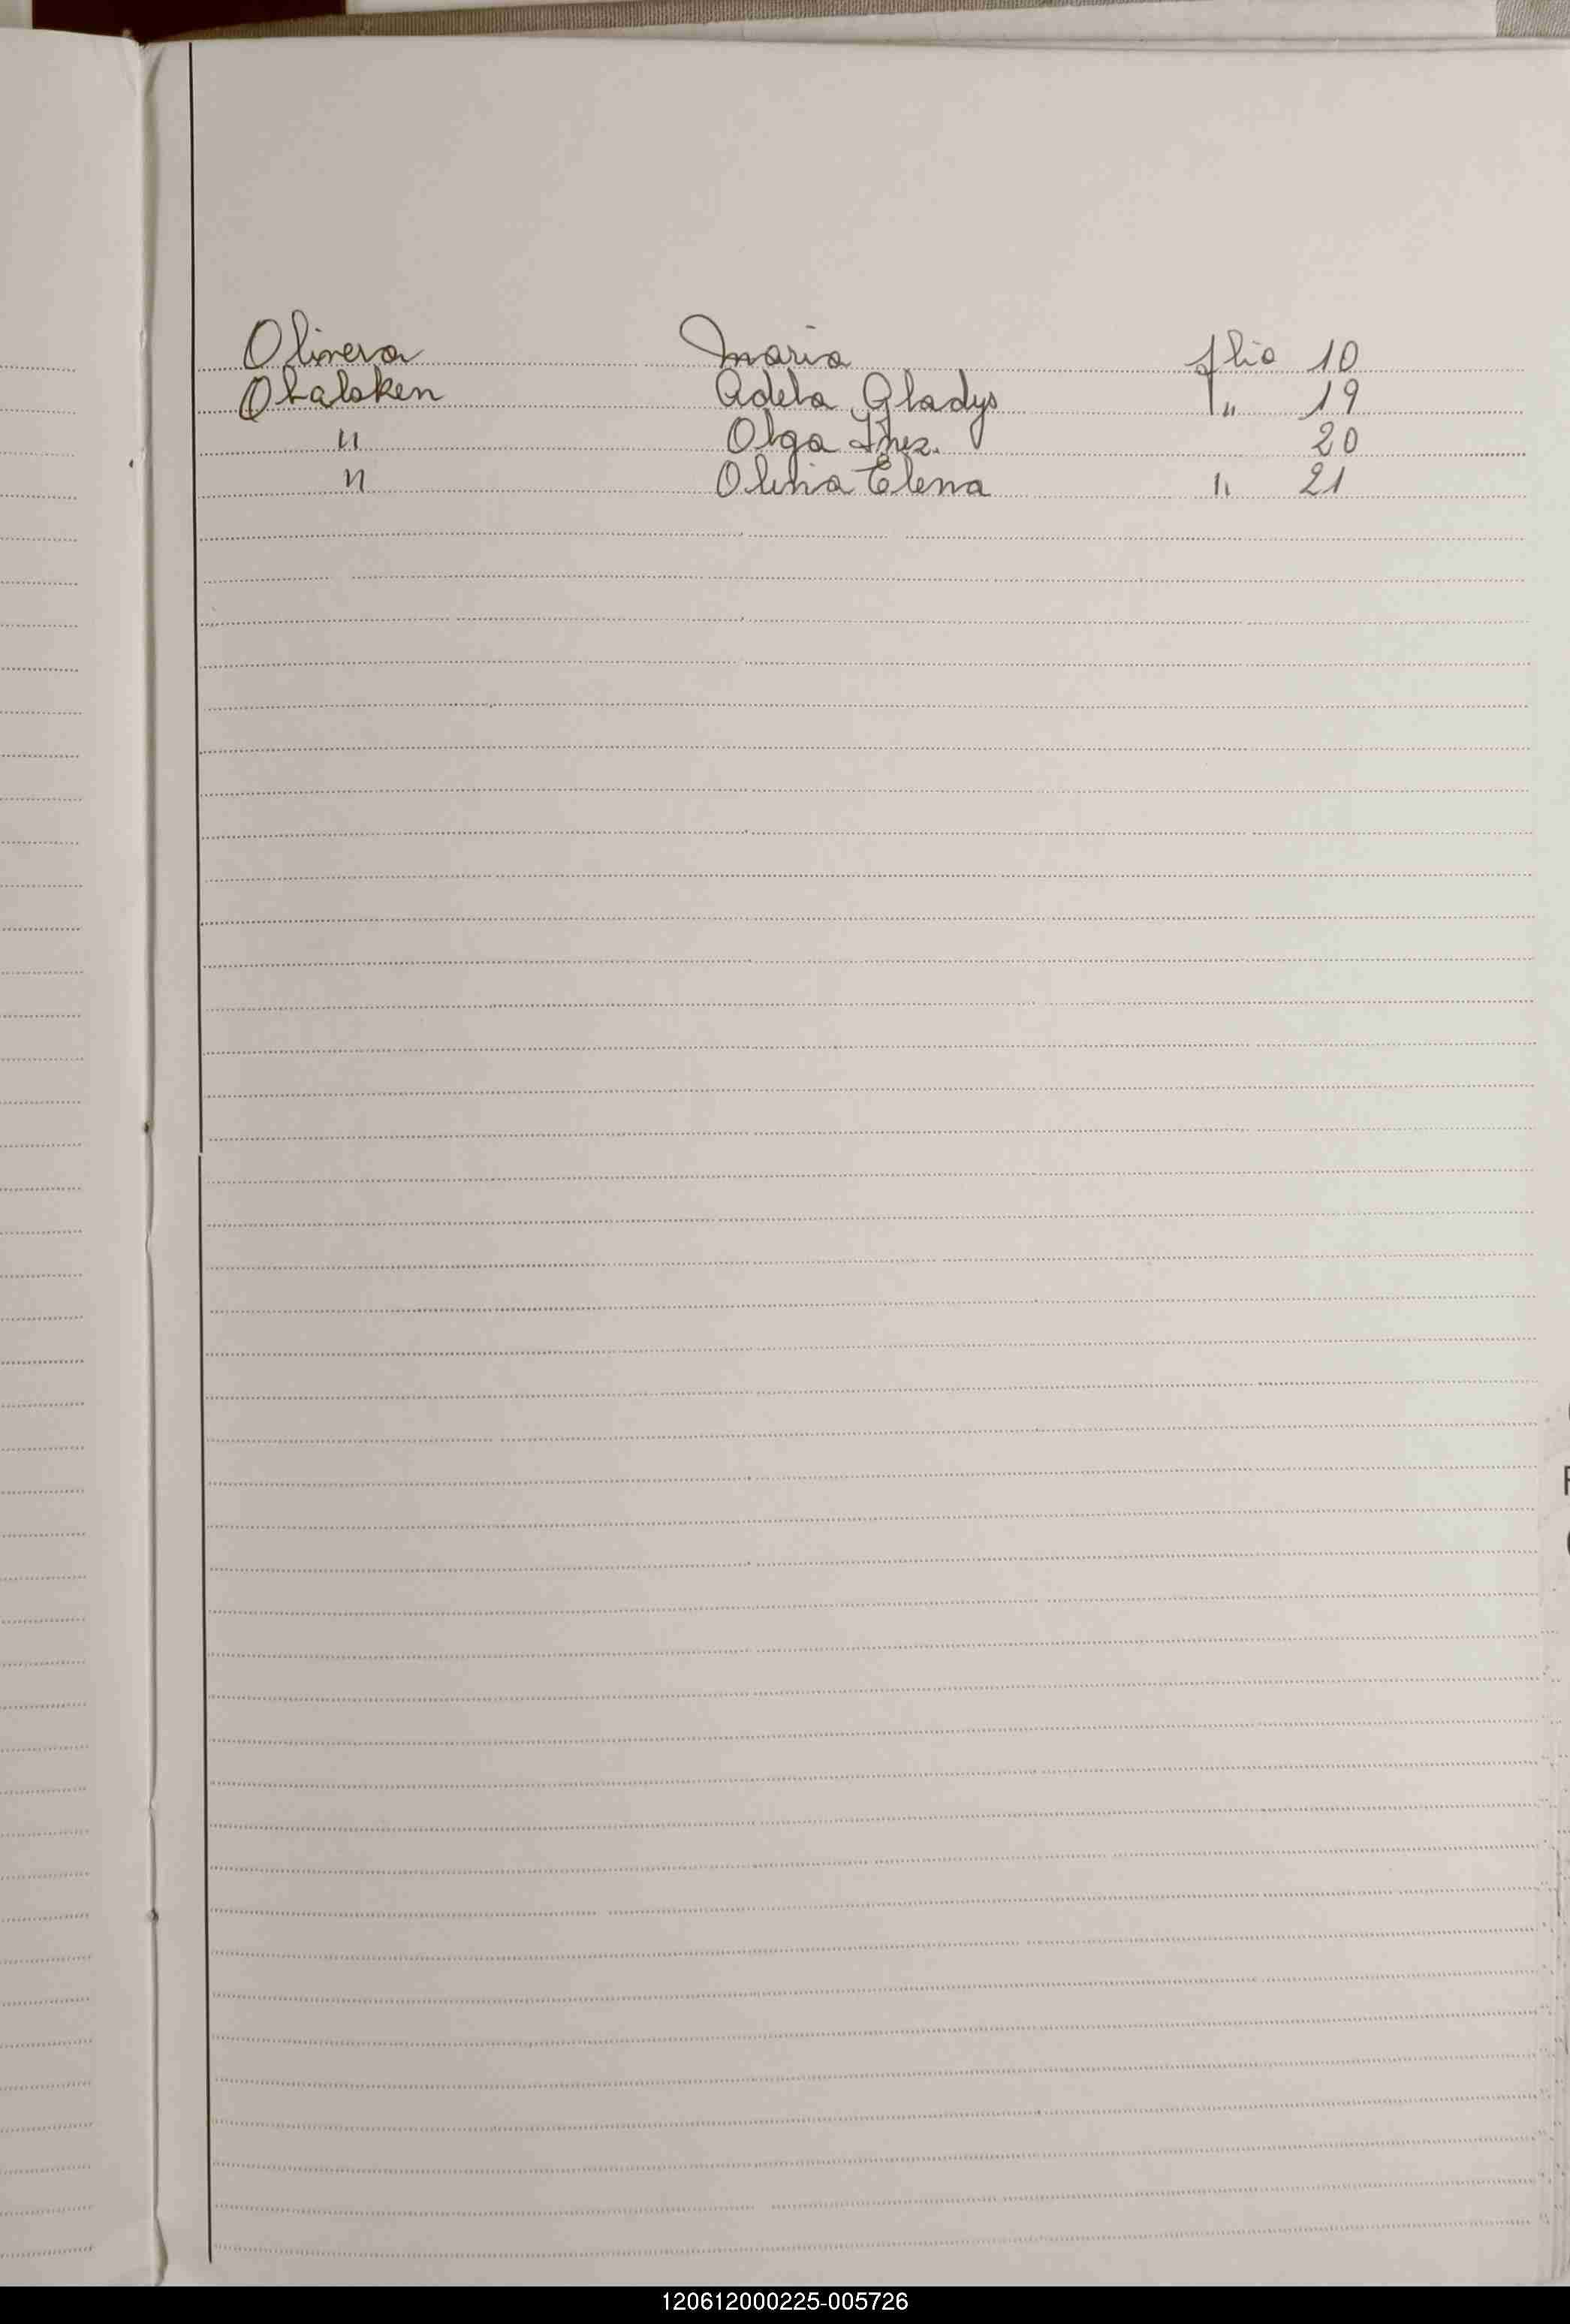 Olivera Maria flio 10
Ohaloken Adela Gladys " 19
" Olga Ines. 20
" Olivia Elena " 21
120612000225-005726